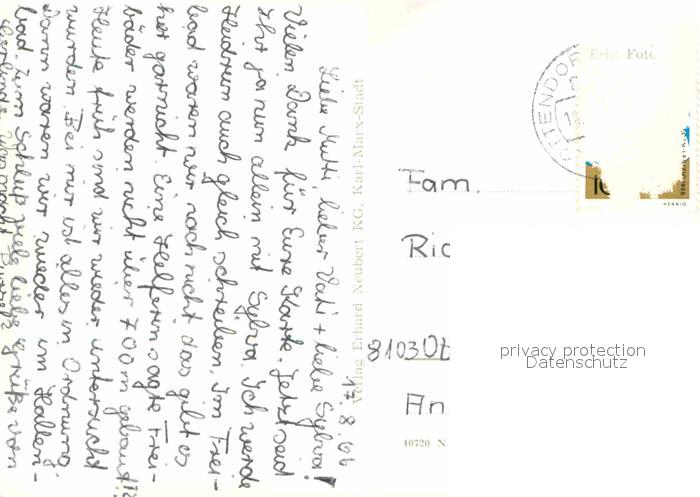 17.8.66
Liebe Mutti, lieber Vati + liebe Sylvia!
Vielen Dank für Eure Karte. Jetzt seid
Ihr ja nun allein mit Sylvia. Ich werde
Heidrun auch gleich schreiben. Im Frei-
bad waren wir noch nicht das gibt es
hier garnicht. Eine Helferin sagte Frei-
bäder werden nicht über 700m gebaut!
Heute früh sind wir wieder untersucht
wurden. Bei mir ist alles in Ordnung.
Dann waren wir wieder im Hallen-
bad. Zum Schluß viele liebe Grüße von
Verlag Erhard Neubert KG, Karl-Marx-Stadt
Echt Foto
OTTENDOR
10
HENNIG
Fam.
Ric
8103 Ot
An
10720 N
privacy protection
Datenschutz